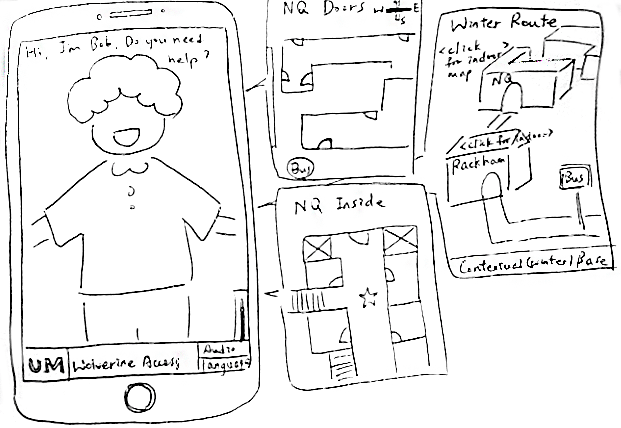 Hi, I'm Bob, Do you need
help?
UM
Wolverine Access
Audio
language
NQ Doors
W
E
S
Bus
NQ Inside
Winter Route
<click
for indoor>
map
NQ
<click for indoor>
Rackham
Bus
Contextual (winter) Base